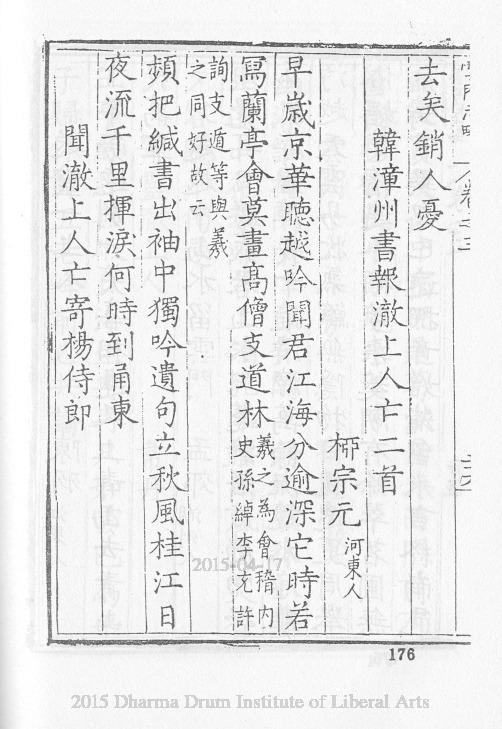 去矣銷人憂
韓漳州書報澈上人亡二首
栁宗元 河東人
早歲京華聽越吟聞君江海分逾深它時若
寫蘭亭會莫畫髙僧支道林 羲之為會稽内
史孫綽李充許
詢支遁等與羲
之同好故云
頻把緘書出袖中獨吟遺句立秋風桂江日
夜流千里揮淚何時到甬東
聞澈上人亡寄楊侍郎
176
2015-04-17
2015 Dharma Drum Institute of Liberal Arts